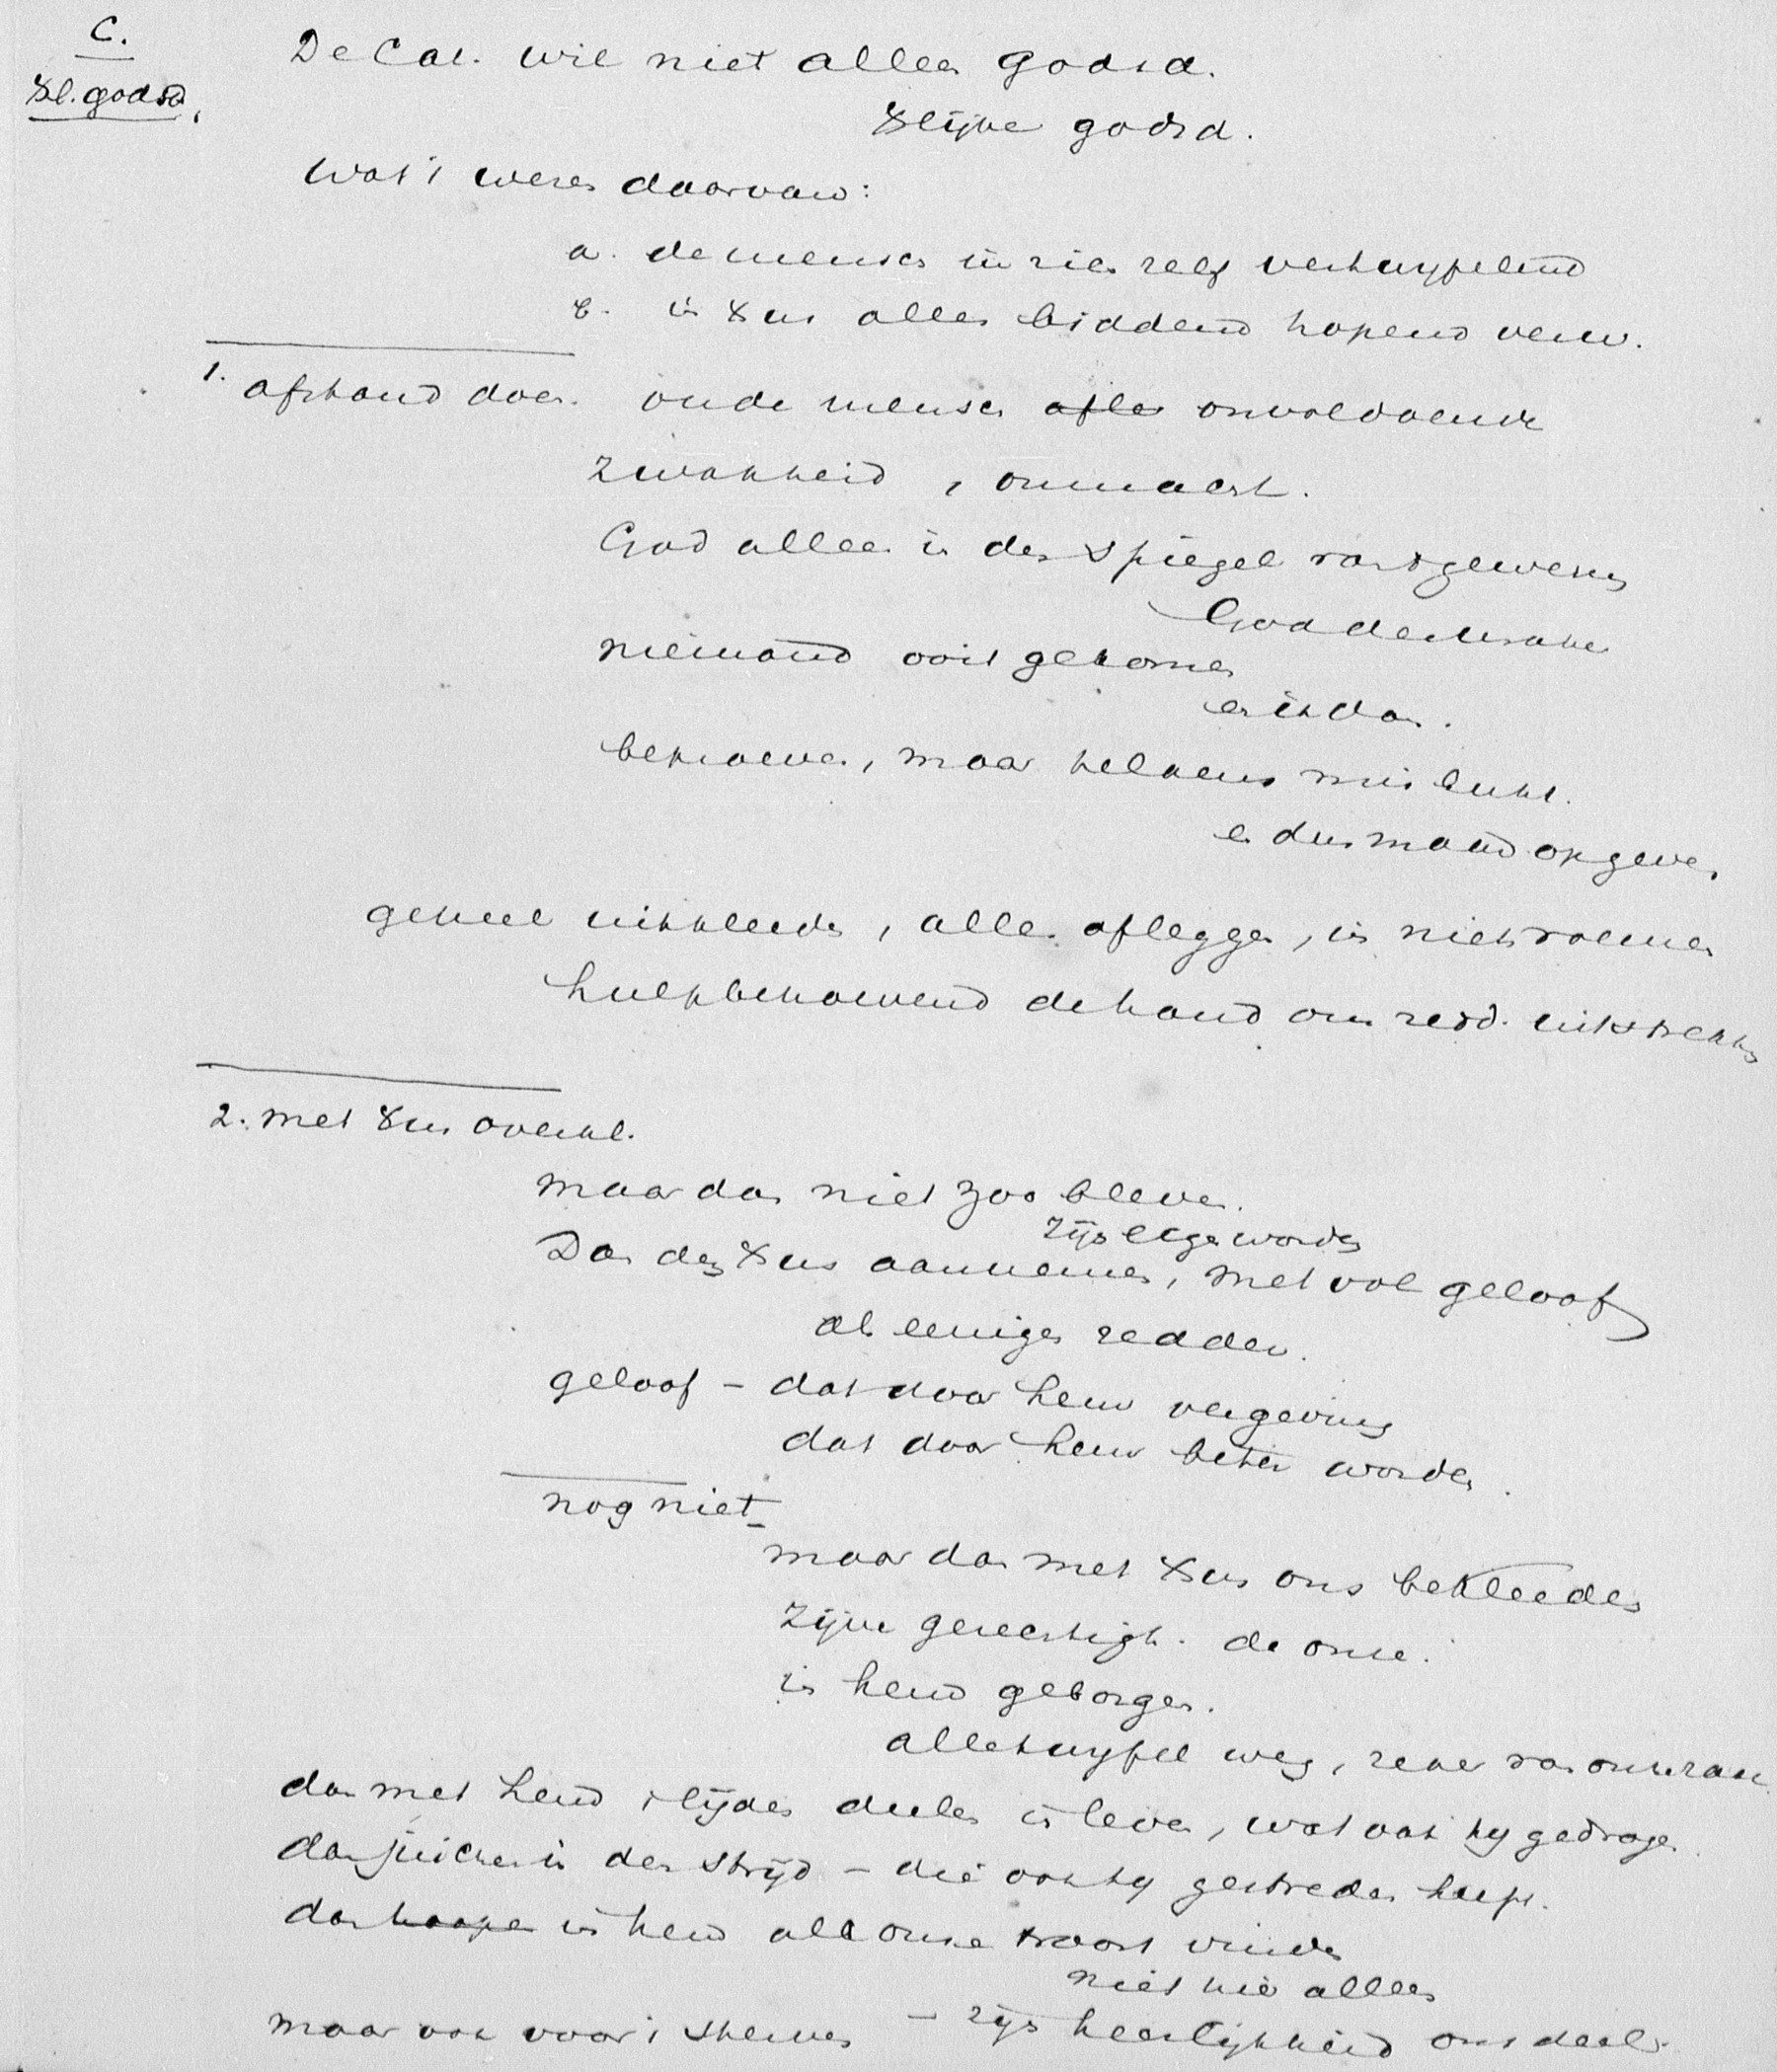 C.
Xl. godsd.
De Cat. wil niet alleen godsd.
Xlijke godsd.
Wat 't wezen daarvan:
a. de mensch in zich zelf vertwijfelend
b. in Xus alles biddend hopend verw.
1. afstand doen. oude mensch afleg onvoldoende
zwakheid, onmacht.
God alleen in den spiegel
God de
niemand ooit gekomen
en ik dan.
beproeven, maar telkens mislukt.
en dus maar opgeven.
geheel uitkleeden, alles afleggen, in niets roemen
hulpbehoevend de hand om redd. uitstrekken
2. met Xus overkl.
maar dan niet zoo bleven.
zijn eigen worden
Dan den Xus aannemen, met vol geloof
als eenigen redder.
geloof – dat door hem vergeving
dat door hem beter worden.
nog niet
maar dan met Xus ons bekleeden
Zijne gerechtigh. de onze.
in hem geborgen.
alle twijfel weg, zeker van onze zaak
dan met hem 't lijden deelen in leven, wat ook hij gedragen.
dan juichen in den strijd – die ook hij gestreden heeft.
dan hoopen in hem al onze troost vinden
niet hier alleen
maar ook voor 't sterven – zijn heerlijkheid ons deel.